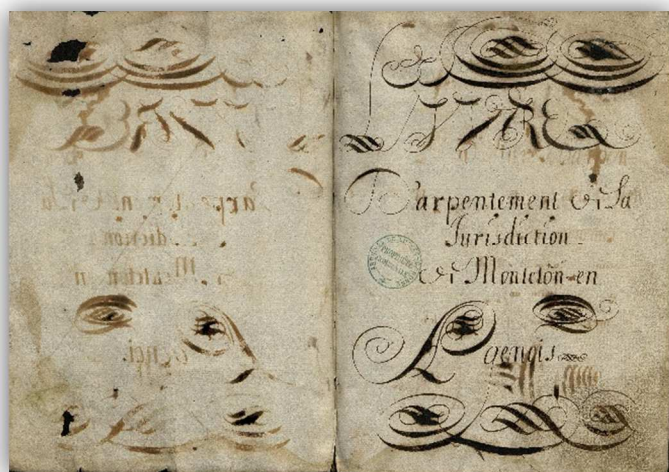 LIVRE
Darpentement De La
Jurisdiction
De Monteton en
Agenois